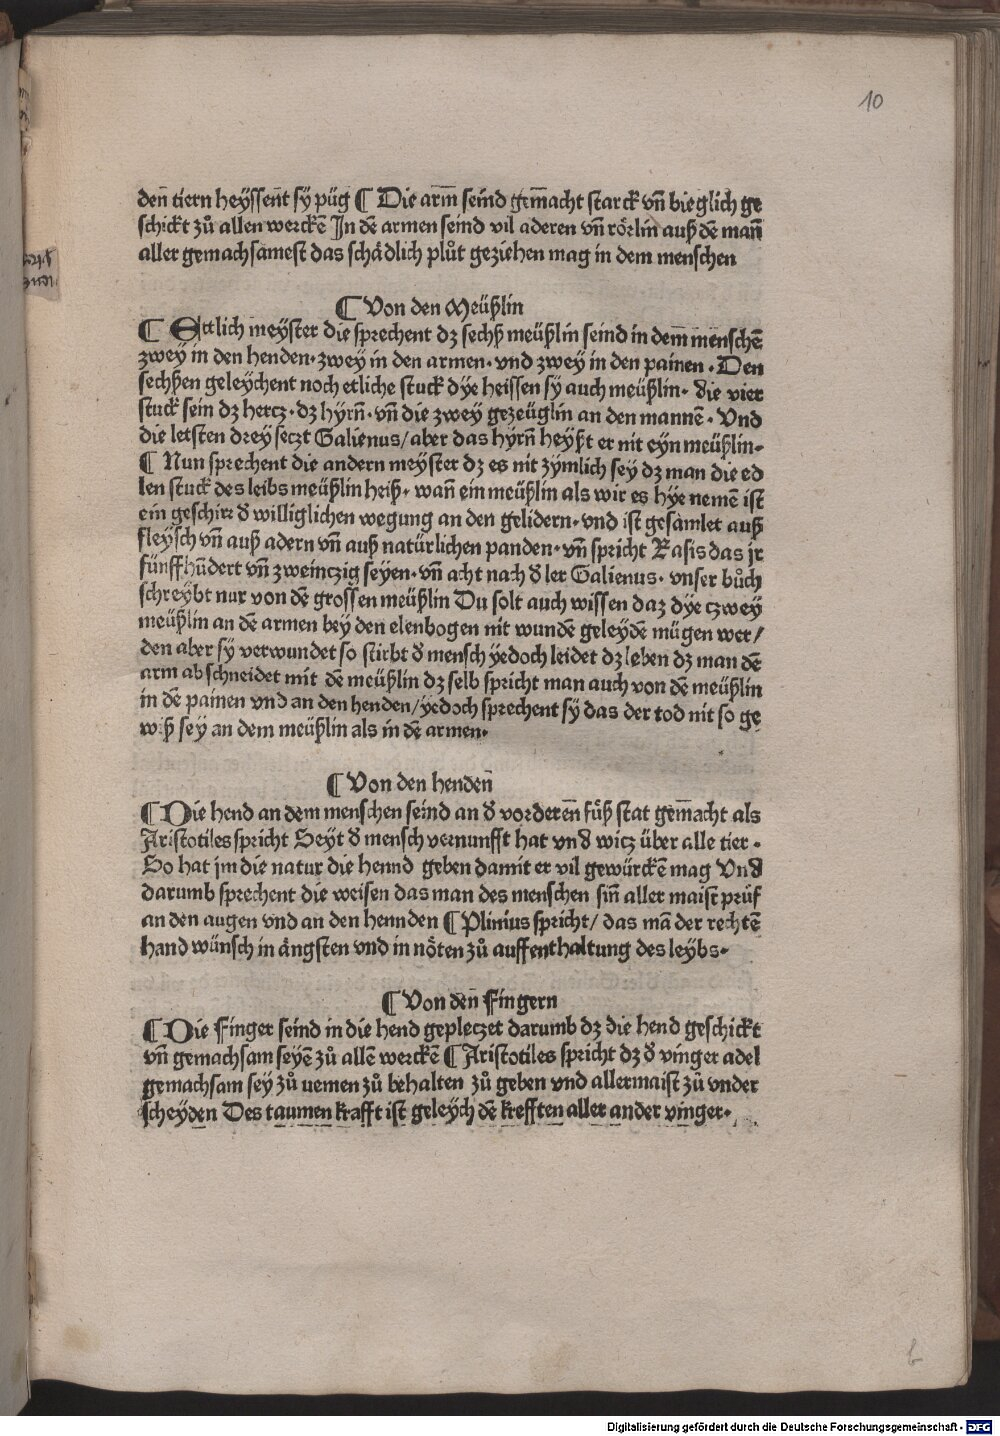 10
den̄ tiern heyſſen̄t ſÿ püg ¶ Die arm̄ ſeind gem̄acht ſtarck vn̄ bieglich ge
ſchickt zů allen werckē In dē armen ſeind vil aderen vn̄ rörlin auß dē man̄
aller gemachſameſt das ſchädlich plůt geziehen mag in dem menſchen
¶ Von den Meüßlin
¶ Ettlich meyſter die ſprechent dz ſechß meüßlin ſeind in dem̄ menſchē
zwey in den henden· zwey in den armen· vnd zwey in den painen · Den
ſechßen geleychent noch etliche ſtuck dÿe heiſſen ſÿ auch meüßlin· die vier
ſtuck ſein dz hercz· dz hÿrn̄· vn̄ die zwey gezeüglin an den mannē · Vnd
die letſten drey ſeczt Galienus/ aber das hÿrn̄ heyßt er nit eyn meüßlin·
¶ Nun ſprechent die andern meyſter dz es nit zÿmlich ſey dz man die ed
len ſtuck des leibs meüßlin heiß· wan̄ ein meüßlin als wir es hÿe nemē iſt
ein geſchirr d̄ williglichen wegung an den gelidern· vnd iſt geſamlet auß
fleyſch vn̄ auß adern vn̄ auß natürlichen panden· vn̄ ſpricht Raſis das jr
fünffhūdert vn̄ zweinczig ſeyen· vn̄ acht nach d̄ ler Galienus· vnſer bůch
ſchreybt nur von dē groſſen meüßlin Du ſolt auch wiſſen daz dÿe czwey
meüßlin an dē armen bey den elenbogen nit wundē geleydē mügen wer/
den aber ſÿ verwundet ſo ſtirbt d̄ menſch ÿedoch leidet dz leben dz man dē
arm abſchneidet mit dē meüßlin dz ſelb ſpricht man auch von dē meüßlin
in dē painen vnd an den henden/ ÿedoch ſprechent ſÿ das der tod nit ſo ge
wiß ſey an dem meüßlin als in dē armen·
¶ Von den henden̄
¶ Die hend an dem menſchen ſeind an d̄ vorderen̄ füß ſtat gem̄acht als
Ariſtotiles ſpricht Seyt d̄ menſch vernunfft hat vnd̄ wicz über alle tier ·
So hat jm die natur die hennd geben damit er vil gewürckē mag Vnd̄
darumb ſprechent die weiſen das man des menſchen ſin̄ aller maiſt prüf
an den augen vnd an den hennden ¶ Plinius ſpricht/ das mā der rechtē
hand wünſch in ängſten vnd in nöten zů auffenthaltung des leybs·
¶ Von den̄ Fingern
¶ Die Finger ſeind in die hend gepleczet darumb dz die hend geſchickt
vn̄ gemachſam ſeyē zů allē werckē ¶ Ariſtotiles ſpricht dz d̄ vinger adel
gemachſam ſey zů uemen zů behalten zů geben vnd allermaiſt zů vnder
ſcheyden Des taumen krafft iſt geleych dē krefften aller ander vinger·
b
Digitalisierung gefördert durch die Deutsche Forschungsgemeinschaft - DFG